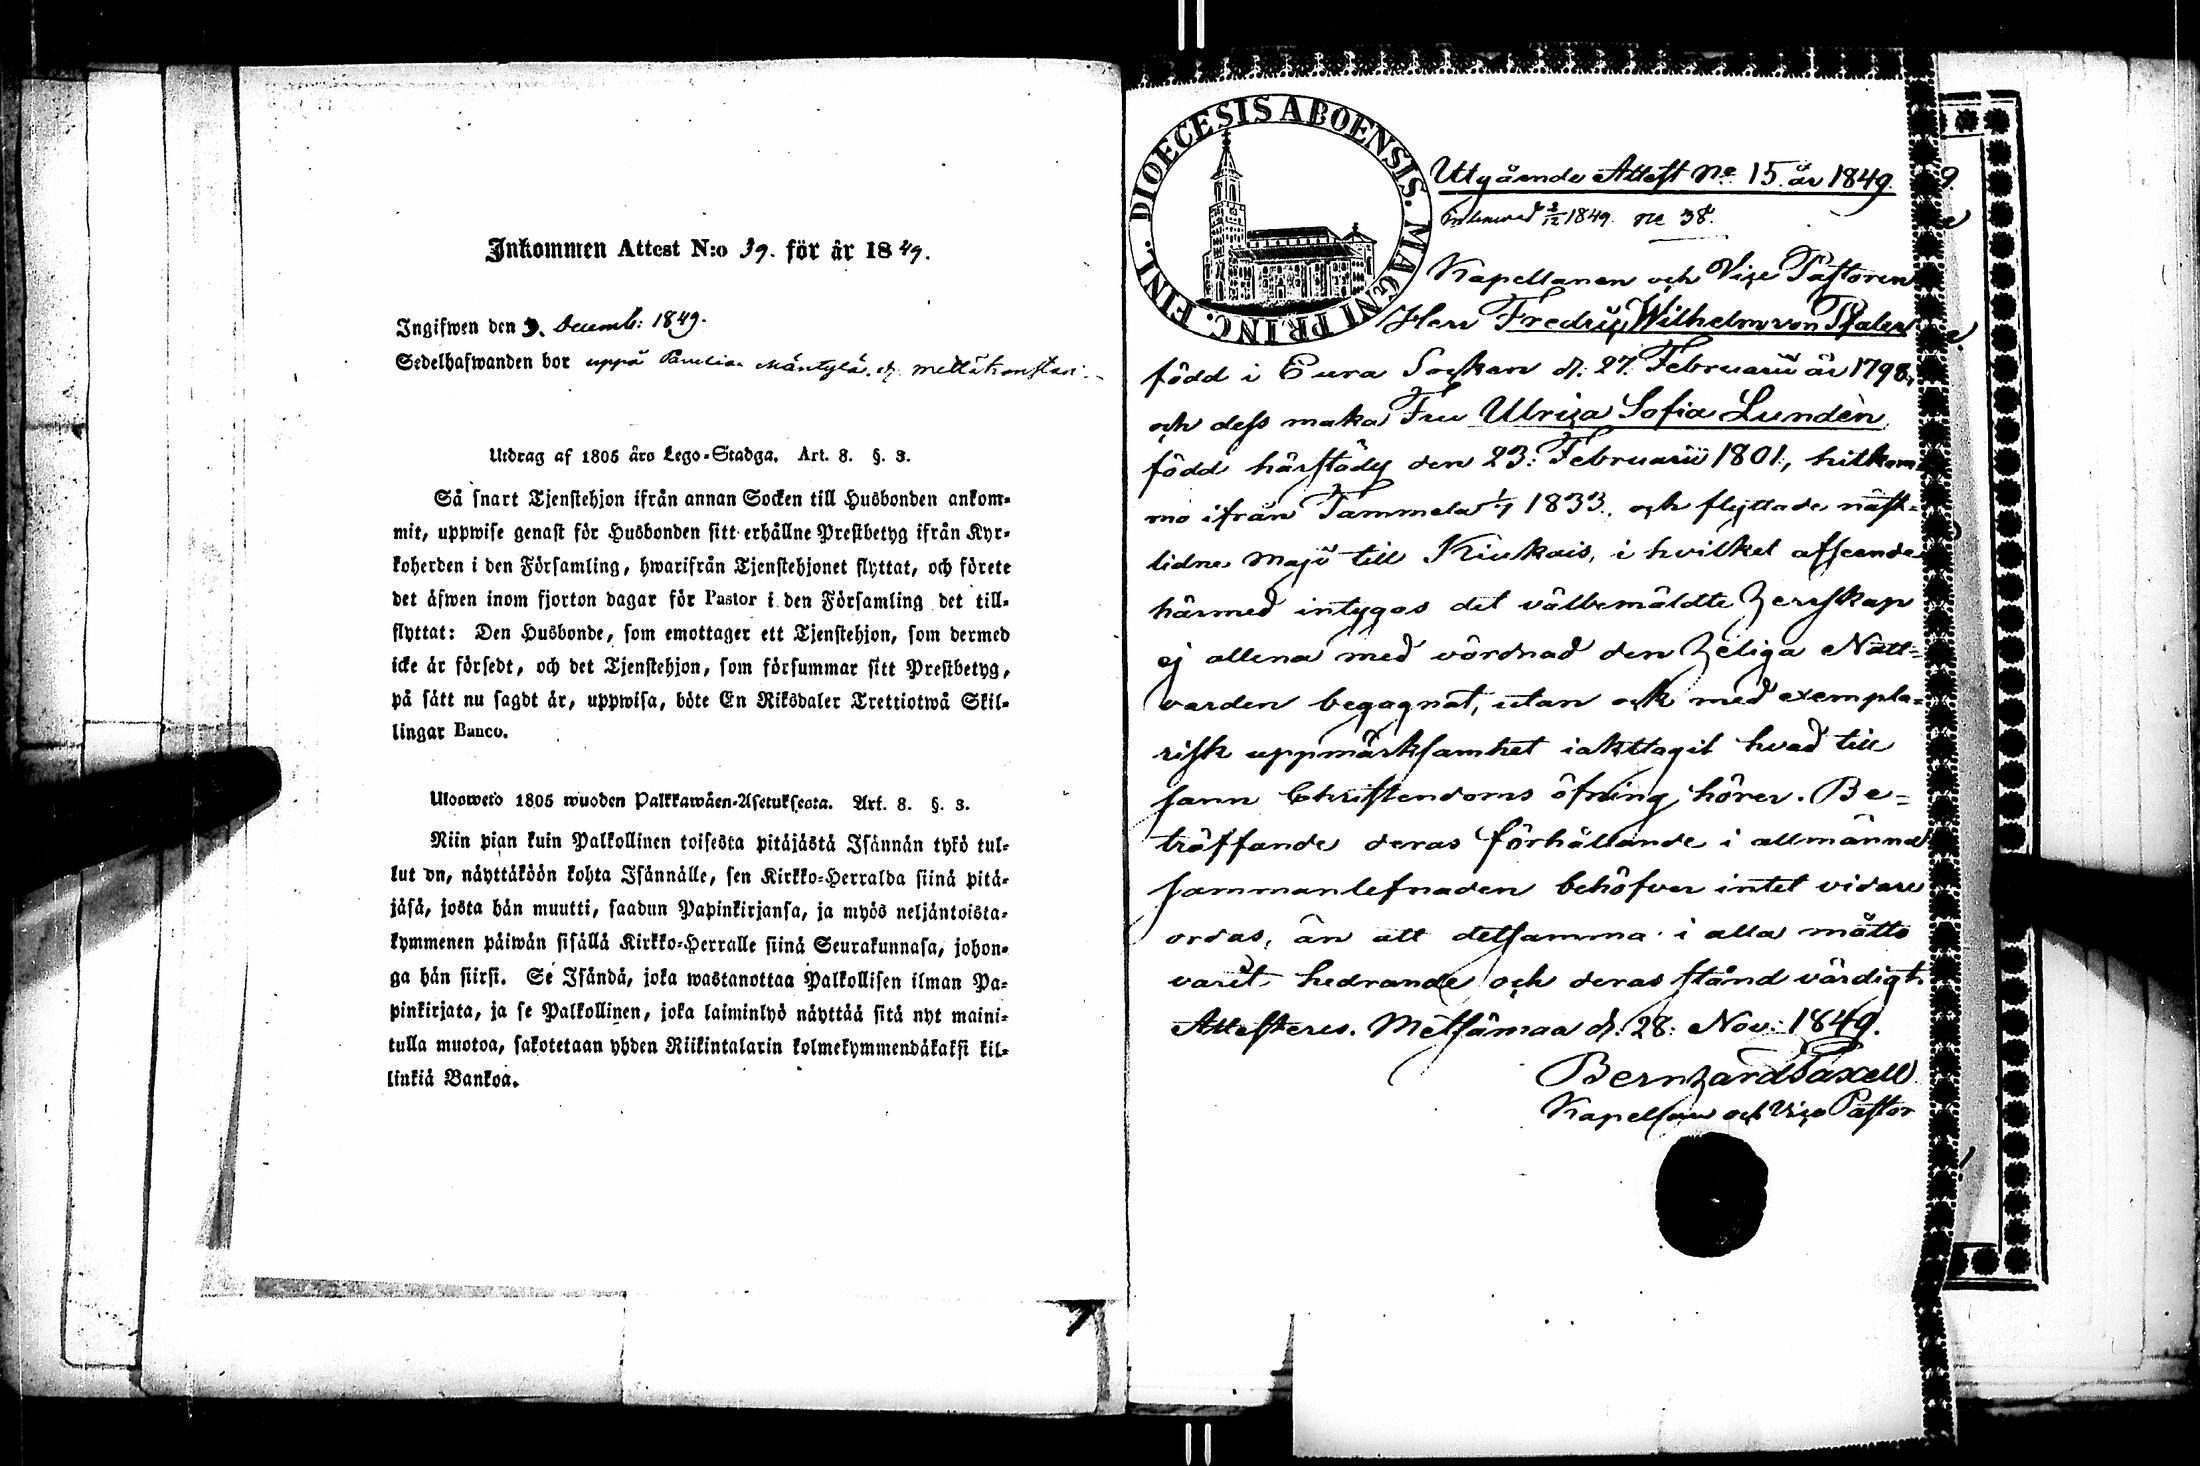 Inkommen Attest N:o 39. för år 1849.
Ingifwen den 3. Decemb: 1849.
Sedelhafwanden bor uppå Panelia Mäntylä
Utdrag af 1805 års Lego-Stadga. Art. 8. §. 3.
Så snart Tjenstehjon ifrån annan Socken till Husbonden ankom-
mit, uppwise genast för Husbonden sitt erhållne Prestbetyg ifrån Kyr-
koherden i den Församling, hwarifrån Tjenstehjonet flyttat, och förete
det äfwen inom fjorton dagar för Pastor i den Församling det till-
flyttat: Den Husbonde, som emottager ett Tjenstehjon, som dermed
icke är försedt, och det Tjenstehjon, som försummar sitt Prestbetyg,
på sätt nu sagdt är, uppwisa, böte En Riksdaler Trettiotwå Skil-
lingar Banco.
Ulosweto 1805 wuoden Palkkawäen-Asetuksesta. Art. 8. §. 3.
Niin pian kuin Palkollinen toisesta pitäjästä Isännän tykö tul-
lut on, näyttäköön kohta Isännälle, sen Kirkko-Herralda siinä pitä-
jäsä, josta hän muutti, saadun Papinkirjansa, ja myös neljäntoista-
kymmenen päiwän sisällä Kirkko-Herralle siinä Seurakunnasa, johon-
ga hän siirsi. Se Isändä, joka wastanottaa Palkollisen ilman Pa-
pinkirjata, ja se Palkollinen, joka laiminlyö näyttää sitä nyt maini-
tulla muotoa, sakotetaan yhden Riikintalarin kolmekymmendäkaksi kil-
linkiä Bankoa.
DIOECESIS ABOENSIS. MAGNI PRINC. FINL.
Utgående Attest No 15. år 1849.
1849. No 38.
Kapellanen och Vice Pastoren
Herr Fredric Wilhelm von Pfaler
född i Eura Socken d. 27. Februarii år 1798,
och dess maka Fru Ulrica Sofia Lundèn,
född härstädes den 23: Februarii 1801, hitkom-
mo ifrån Tammela 1833, och flyttade näst-
lidne Maji till Kiukais, i hvilket afseende
härmed intygas det välbemäldte Herrskap
ej allena med vördnad den Heliga Natt-
varden begagnat, utan ock med exempla-
risk uppmärksamhet iakttagit hvad till
sann Christendoms öfning hörer. Be-
träffande deras förhållande i allmänna
sammanlefnaden behöfver intet vidare
ordas, än att detsamma i alla måtto
varit hedrande och deras stånd värdigt.
Attesteres. Metsämaa d. 28: Nov: 1849.
Bernhard Paxell
Kapellan och Vice Pastor